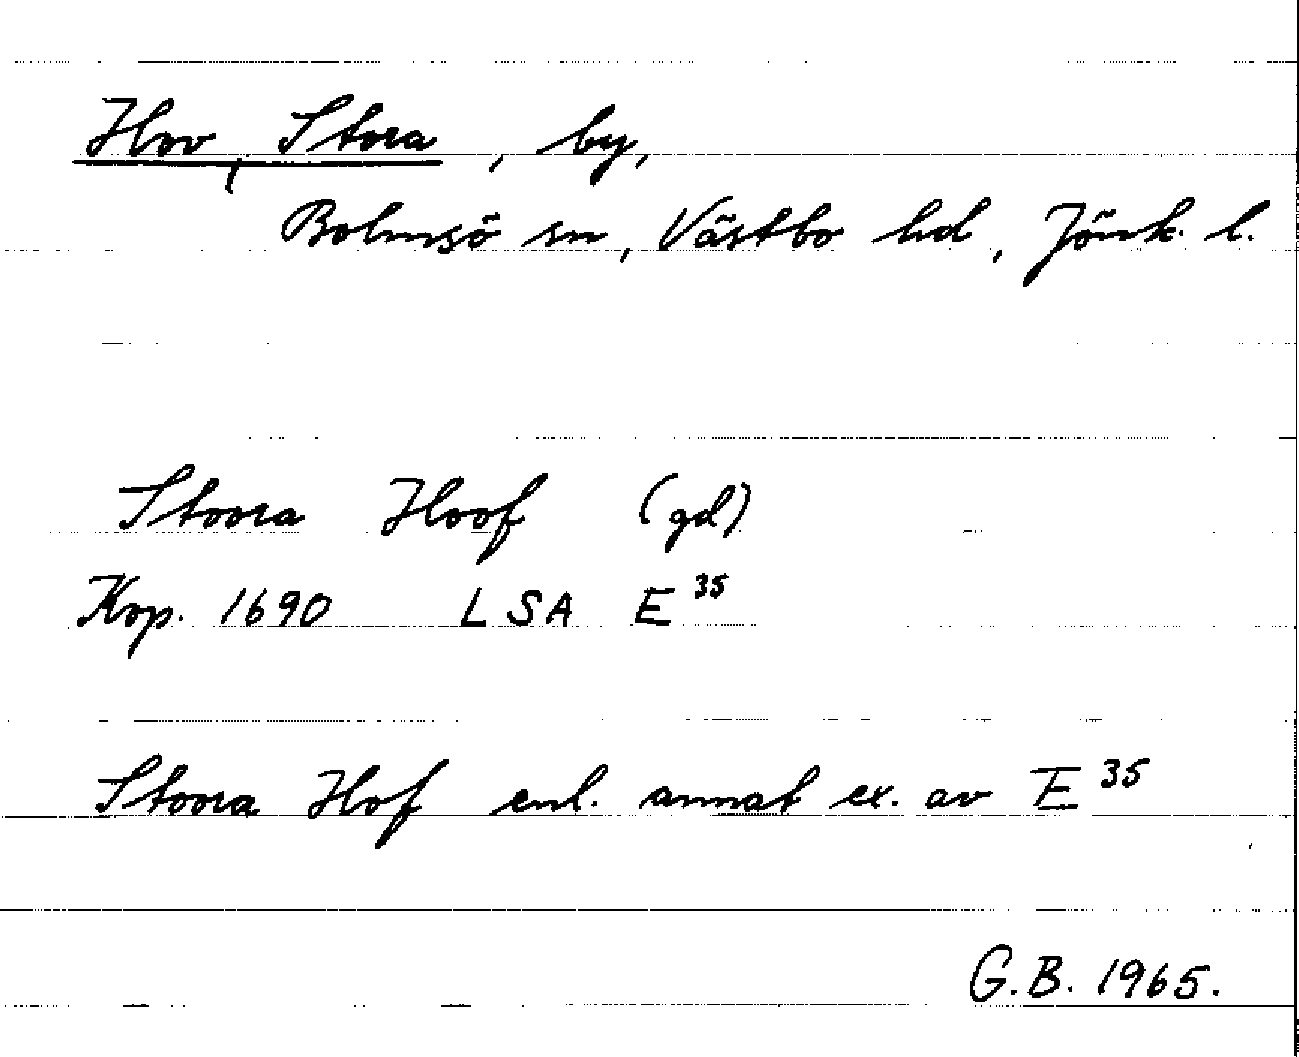 Hov, Stora, by,
Bolmsö sn, Västbo hd, Jönk. l.
Stoora Hoof (gd)
Kop. 1690 LSA E 35
Stoora Hof enl. annat ex. av E 35
G.B. 1965.